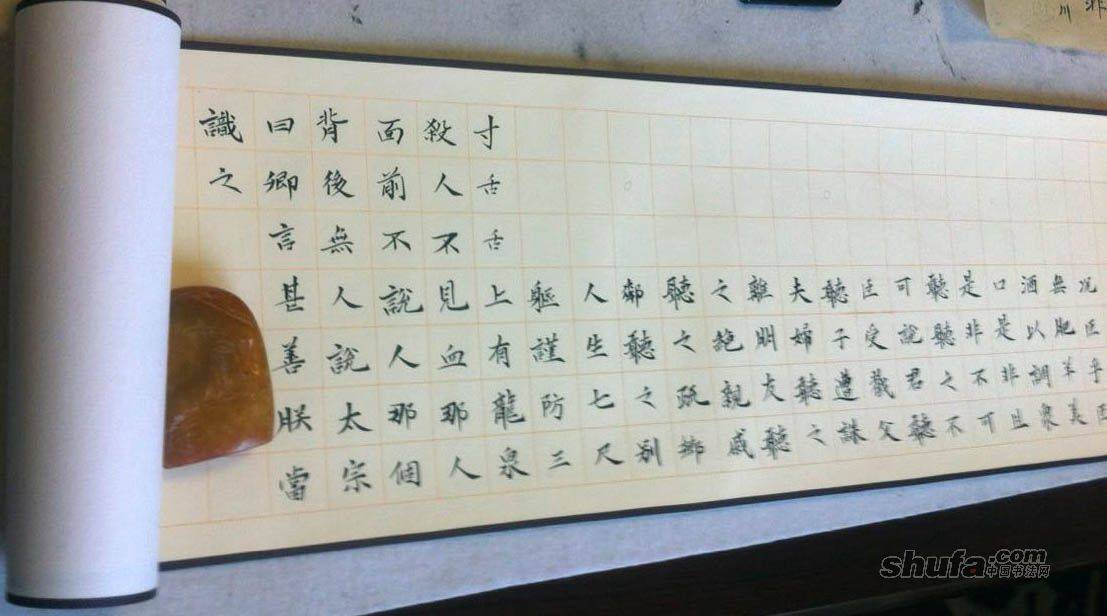 况臣乎
無肥羊美
酒以調衆
口是非且
是非不可
聽聽之不
可說君聽
臣受戮父
聽子遭誅
夫婦聽之
離朋友聽
之親戚
聽之疏鄉
鄰聽之别
人生七尺
軀謹防三
寸舌舌上有龍泉
殺人不見血那人
面前不說人那個
背後無人說太宗
曰卿言甚善朕當
識之
shufa.com
中国书法网